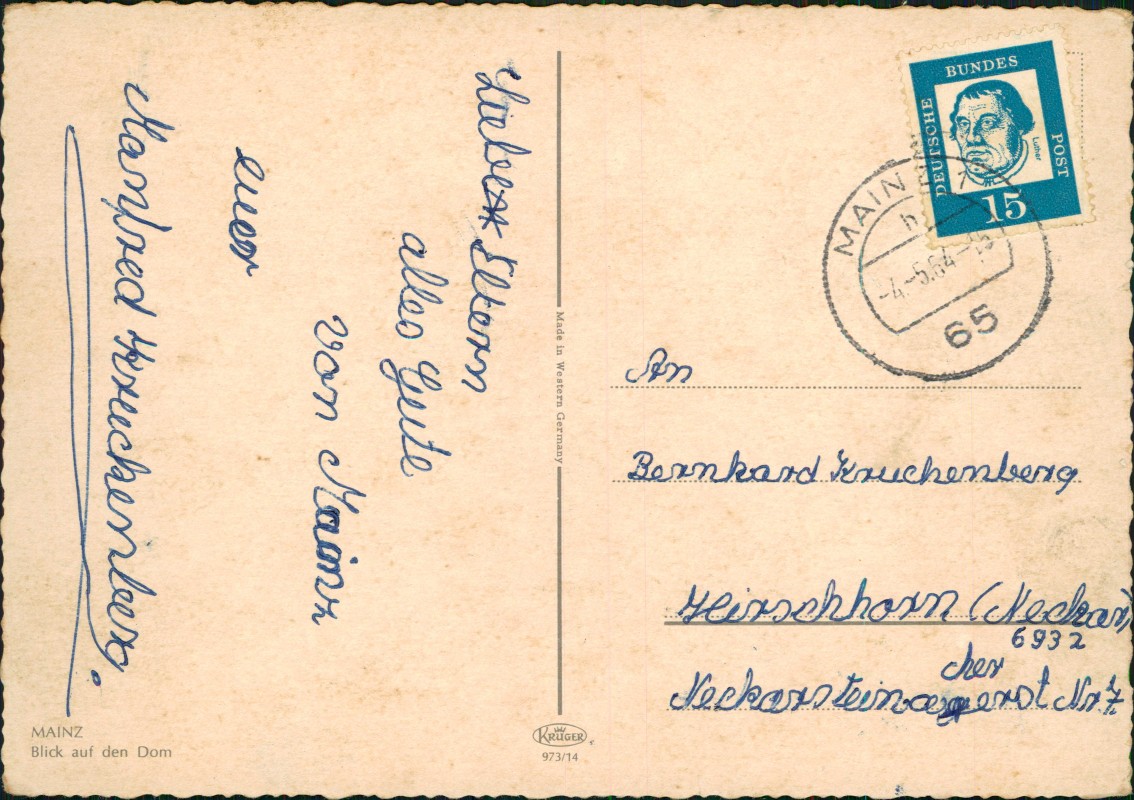 Liebe Eltern
alles Gute
von Mainz
euer
Manfred Kruckenberg.
MAINZ
Blick auf den Dom
Made in Western Germany
KRÜGER
973/14
DEUTSCHE BUNDES POST
Luther
15
MAINZ
-4.-5.64
65
An
Bernhard Kruckenberg
Hirschhorn (Neckar)
6932
Neckarsteinacherst Nr. 7